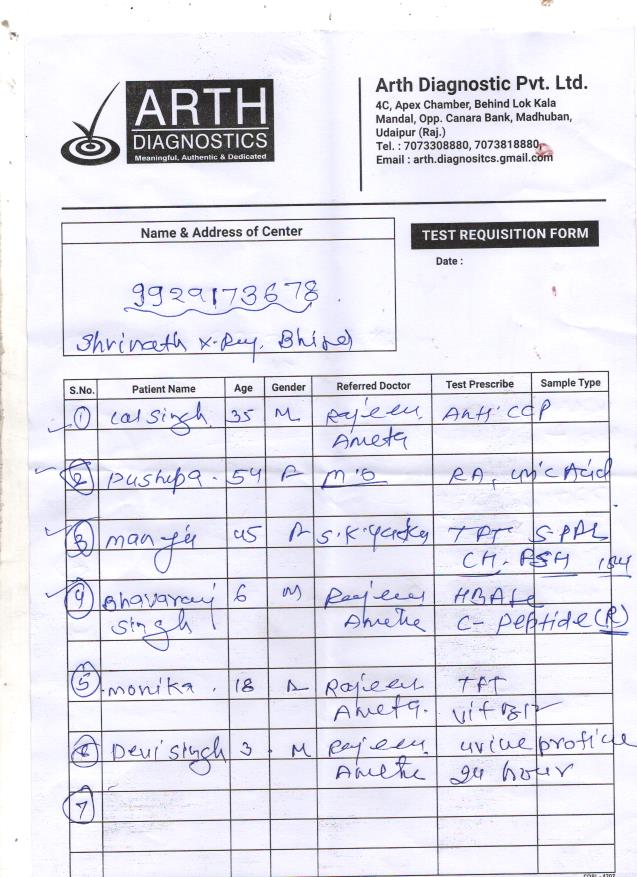 ARTH
DIAGNOSTICS
Meaningful, Authentic & Dedicated
Arth Diagnostic Pvt. Ltd.
4C, Apex Chamber, Behind Lok Kala
Mandal, Opp. Canara Bank, Madhuban,
Udaipur (Raj.)
Tel. : 7073308880, 7073818880
Email : arth.diagnositcs.gmail.com
Name & Address of Center
TEST REQUISITION FORM
Date :
9929173678
Shrinath X-Ray,
S.No. Patient Name Age Gender Referred Doctor Test Prescribe Sample Type
1 Lal Singh 35 M Rajeev Anti CCP
Ameta
2 Pushpa 54 F M'O RA, uric Acid
3 45 F S.K.
CH.
4 6 M Rajeev HBA1c
Singh Ameta C-Peptide (R)
5 Monika 18 Rajeev TFT
Ameta Vit B12
6 Devi Singh 3 M Rajeev urine
Ameta 24 hour
7